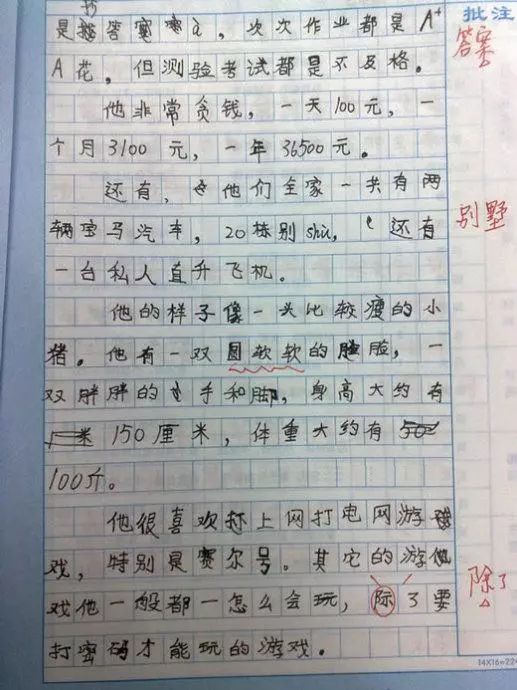 批注
是抄答案à，次次作业都是A+
答案
A花，但测验考试都是不及格。
他非常贪钱，一天100元，一
个月3100元，一年36500元。
还有，他们全家一共有两
辆宝马汽车，20栋别shù，还有
别墅
一台私人直升飞机。
他的样子像一头比较瘦的小
猪。他有一双圆软软的脸，一
双胖胖的手和脚，身高大约有
150厘米，体重大约有
100斤。
他很喜欢上网打电网游
戏，特别是赛尔号。其它的游
戏他一般都一怎么会玩，际了要
除了
打密码才能玩的游戏。
14X16=224